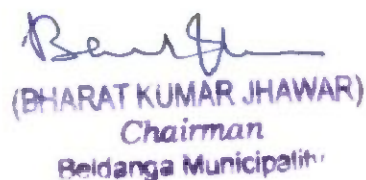 (BHARAT KUMAR JHAWAR)
Chairman
Beldanga Municipality